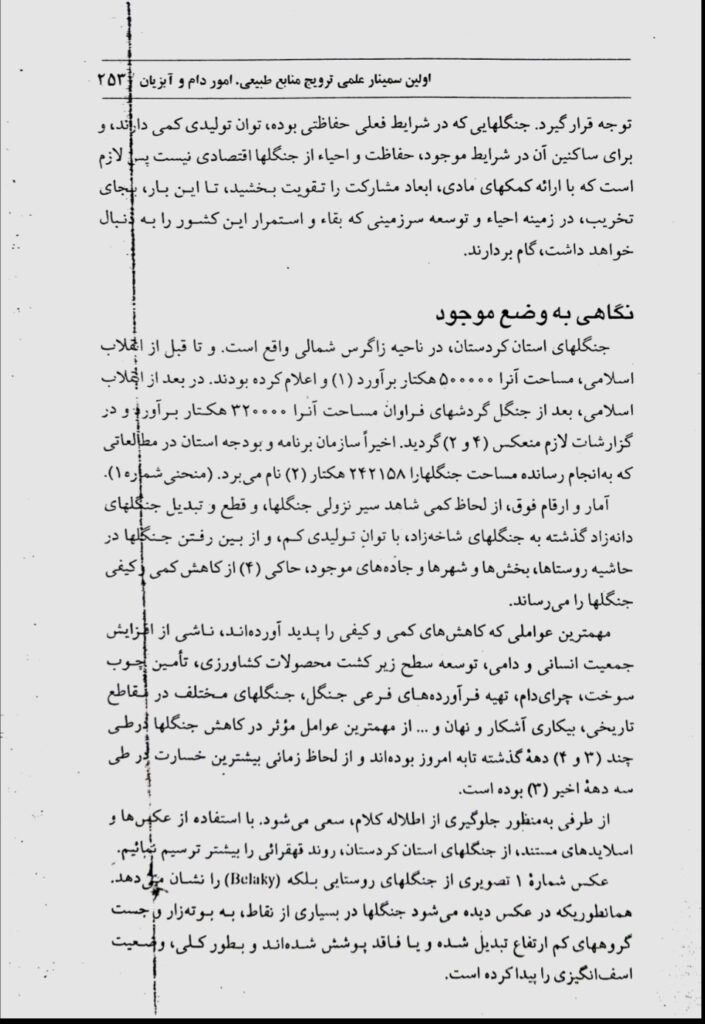 اولین سمینار علمی ترویج منابع طبیعی. امور دام و آبزیان / ۲۵۳
توجه قرار گیرد. جنگلهایی که در شرایط فعلی حفاظتی بوده، توان تولیدی کمی دارند، و
برای ساکنین آن در شرایط موجود، حفاظت و احیاء از جنگلها اقتصادی نیست پس لازم
است که با ارائه کمکهای مادی، ابعاد مشارکت را تقویت بخشید، تا این بار، بجای
تخریب، در زمینه احیاء و توسعه سرزمینی که بقاء و استمرار این کشور را به دنبال
خواهد داشت، گام بردارند.
نگاهی به وضع موجود
جنگلهای استان کردستان، در ناحیه زاگرس شمالی واقع است. و تا قبل از انقلاب
اسلامی، مساحت آنرا ۵۰۰۰۰۰ هکتار برآورد (۱) و اعلام کرده بودند. در بعد از انقلاب
اسلامی، بعد از جنگل گردشهای فراوان مساحت آنرا ۳۲۰۰۰۰ هکتار برآورد و در
گزارشات لازم منعکس (۴ و ۲) گردید. اخیراً سازمان برنامه و بودجه استان در مطالعاتی
که به‌انجام رسانده مساحت جنگلهارا ۲۴۲۱۵۸ هکتار (۲) نام می‌برد. (منحنی شماره ۱).
آمار و ارقام فوق، از لحاظ کمی شاهد سیر نزولی جنگلها، و قطع و تبدیل جنگلهای
دانه‌زاد گذشته به جنگلهای شاخه‌زاد، با توان تولیدی کم، و از بین رفتن جنگلها در
حاشیه روستاها، بخش‌ها و شهرها و جاده‌های موجود، حاکی (۴) از کاهش کمی و کیفی
جنگلها را می‌رساند.
مهمترین عواملی که کاهش‌های کمی و کیفی را پدید آورده‌اند، ناشی از افزایش
جمعیت انسانی و دامی، توسعه سطح زیر کشت محصولات کشاورزی، تأمین چوب
سوخت، چرای‌دام، تهیه فرآورده‌های فرعی جنگل، جنگلهای مختلف در مقاطع
تاریخی، بیکاری آشکار و نهان و ... از مهمترین عوامل مؤثر در کاهش جنگلها درطی
چند (۳ و ۴) دههٔ گذشته تابه امروز بوده‌اند و از لحاظ زمانی بیشترین خسارت در طی
سه دههٔ اخیر (۳) بوده است.
از طرفی به‌منظور جلوگیری از اطلاله کلام، سعی می‌شود. با استفاده از عکس‌ها و
اسلایدهای مستند، از جنگلهای استان کردستان، روند قهقرائی را بیشتر ترسیم نمائیم.
عکس شمارهٔ ۱ تصویری از جنگلهای روستایی بلکه (Belaky) را نشان می‌دهد.
همانطوریکه در عکس دیده می‌شود جنگلها در بسیاری از نقاط، به بوته‌زار و جست
گروههای کم ارتفاع تبدیل شده و یا فاقد پوشش شده‌اند و بطور کلی، وضعیت
اسف‌انگیزی را پیدا کرده است.